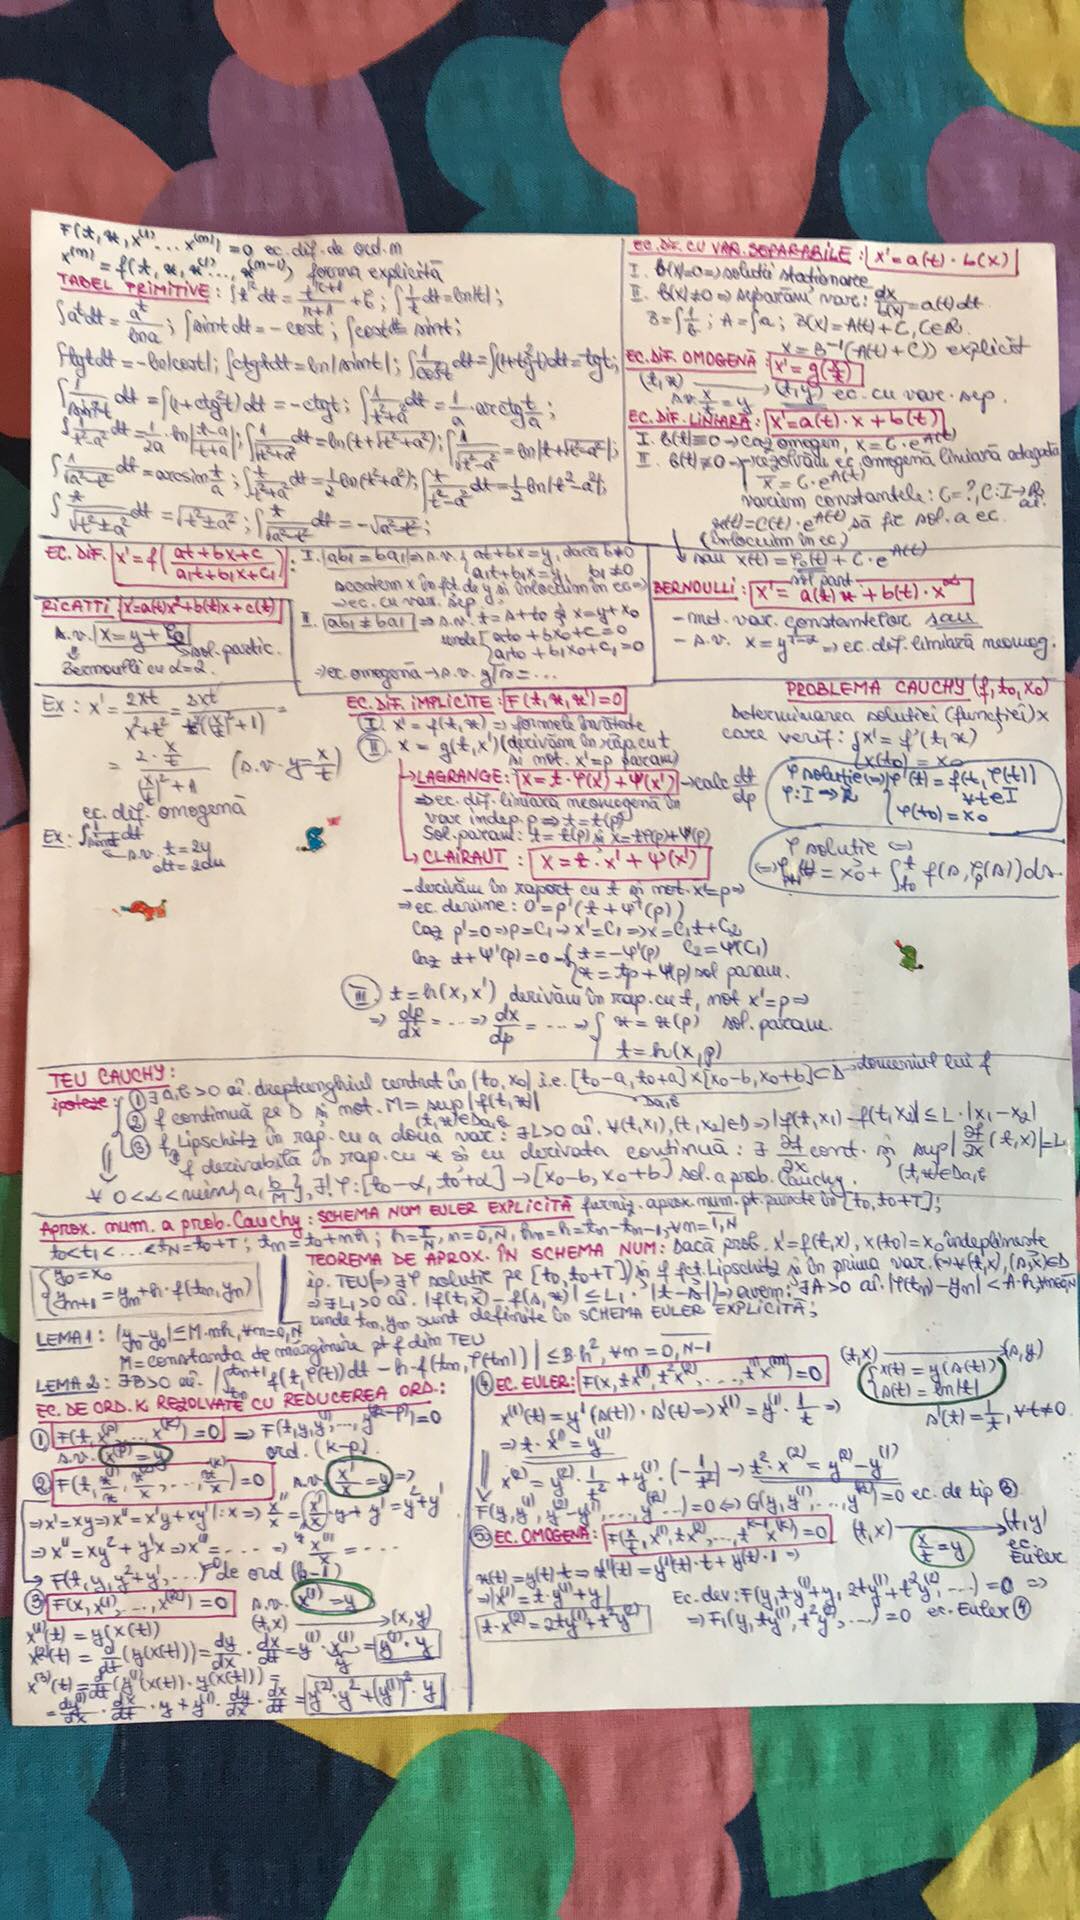 F(t, x, x⁽¹⁾, ... x⁽ⁿ⁾) = 0 ec. dif. de ord. n
x⁽ⁿ⁾ = f(t, x, x⁽¹⁾, ..., x⁽ⁿ⁻¹⁾) forma explicită
TABEL PRIMITIVE: ∫tⁿdt = tⁿ⁺¹/(n+1) + C; ∫1/t dt = ln|t|;
∫aᵗdt = aᵗ/ln a; ∫sint dt = -cost; ∫cost dt = sint;
∫tgt dt = -ln|cost|; ∫ctgt dt = ln|sint|; ∫1/cos²t dt = ∫(1+tg²t)dt = tgt;
∫1/sin²t dt = ∫(1+ctg²t)dt = -ctgt; ∫1/(t²+a²) dt = 1/a · arctg t/a;
∫1/(t²-a²) dt = 1/2a · ln|(t-a)/(t+a)|; ∫1/√(t²+a²) dt = ln(t+√(t²+a²)); ∫1/√(t²-a²) = ln|t+√(t²-a²)|;
∫1/√(a²-t²) dt = arcsin t/a; ∫t/(t²+a²) dt = 1/2 ln(t²+a²); ∫t/(t²-a²) dt = 1/2 ln|t²-a²|;
∫t/√(t²±a²) dt = √(t²±a²); ∫t/√(a²-t²) dt = -√(a²-t²);
EC. DIF. CU VAR. SEPARABILE: x' = a(t) · b(x)
I. b(x)=0 => soluții staționare
II. b(x)≠0 => separăm var: dx/b(x) = a(t) dt
B=∫1/b; A=∫a; B(x) = A(t) + C, C∈R
x = B⁻¹(A(t) + C)) explicit
EC. DIF. OMOGENĂ: x' = g(x/t)
(t, x) → (t, y) ec. cu var. sep.
s.v. x/t = y
EC. DIF. LINIARĂ: x' = a(t) · x + b(t)
I. b(t)≡0 → caz omogen, x = C·e^A(t)
II. b(t)≢0 → rezolvăm ec. omogenă liniară adaptată
x̄ = C·e^A(t)
variem constantele: C=?, C: I→R aî.
x(t) = C(t)·e^A(t) să fie sol. a ec.
(înlocuim în ec)
sau x(t) = φ₀(t) + C·e^A(t)
sol. part.
EC. DIF. x' = f((at+bx+c)/(a₁t+b₁x+c₁)):
I. |ab₁ = ba₁| => s.v. { at+bx=y, dacă b≠0
a₁t+b₁x=y, b₁≠0
scoatem x în fct. de y și înlocuim în ec =>
→ ec. cu var. sep.
II. |ab₁ ≠ ba₁| => s.v. t = s+t₀ și x = y+x₀
unde { at₀+bx₀+c=0
a₁t₀+b₁x₀+c₁=0
→ ec. omogenă → s.v. y/s = ...
RICATTI x'=a(t)x²+b(t)x+c(t)
s.v. x = y + φ₀
sol. partic.
Bernoulli cu α=2.
BERNOULLI: x' = a(t) x + b(t)·x^α
- met. var. constantelor sau
- s.v. x = y^1/(1-α) => ec. dif. liniară neomog.
Ex: x' = 2xt/(x²+t²) = 2xt/t²((x/t)²+1) =
= 2·x/t / ((x/t)²+1) (s.v. y=x/t)
ec. dif. omogenă
Ex: ∫1/sint dt
s.v. t = 2y
dt = 2du
EC. DIF. IMPLICITE: F(t, x, x')=0
I. x' = f(t, x) => formele învățate
II. x = g(t, x') (derivăm în rap cu t
și not. x'=p param)
LAGRANGE: x = t·φ(x') + ψ(x') → calc dt/dp
=> ec. dif. liniară neomogenă în
var indep. p => t = t(p)
Sol. param: t = t(p) și x = tφ(p)+ψ(p)
CLAIRAUT: x = t·x' + ψ(x')
- derivăm în raport cu t și not. x'=p =>
=> ec. devine: 0 = p'(t+ψ'(p))
Caz p'=0 => p=C₁ → x'=C₁ => x=C₁t+C₂
C₂=ψ(C₁)
Caz t+ψ'(p)=0 → { t = -ψ'(p)
x = tp + ψ(p) sol param.
III. t = h(x, x') derivăm în rap. cu t, not x'=p =>
=> dp/dx = ... => dx/dp = ... => { x = x(p) sol. param.
t = h(x, p)
PROBLEMA CAUCHY (f, t₀, x₀)
Determinarea soluției (funcției) x
care verif: { x' = f(t, x)
x(t₀) = x₀
φ soluție <=> { φ'(t) = f(t, φ(t))
φ: I → R ∀t∈I
φ(t₀) = x₀
φ soluție <=>
<=> φ(t) = x₀ + ∫ f(s, φ(s)) ds
TEU CAUCHY:
ipoteze: ① ∃ a,b>0 aî. dreptunghiul centrat în (t₀, x₀) i.e. [t₀-a, t₀+a]×[x₀-b, x₀+b] ⊂ D → domeniul lui f
Da,b
② f continuă pe D și not. M = sup|f(t, x)|
(t,x)∈Da,b
③ f Lipschitz în rap. cu a doua var: ∃L>0 aî. ∀(t,x₁), (t,x₂)∈D => |f(t,x₁) - f(t,x₂)| ≤ L·|x₁-x₂|
f derivabilă în rap. cu x și cu derivata continuă: ∃ ∂f/∂x cont. și sup|∂f/∂x (t,x)| = L
(t,x)∈Da,b
∀ 0<α<min{a, b/M}, ∃! φ: [t₀-α, t₀+α] → [x₀-b, x₀+b] sol. a prob. Cauchy.
Aprox. num. a prob. Cauchy: SCHEMA NUM EULER EXPLICITĂ furniz. aprox. num. pt. puncte în [t₀, t₀+T];
t₀<t₁<...<tN=t₀+T; tn=t₀+nh; h=T/N, n=0,N, hn=h=tn-tn-1, ∀n=1,N
{ y₀ = x₀
yn+1 = yn + h·f(tn, yn)
TEOREMA DE APROX. ÎN SCHEMA NUM: Dacă prob. x'=f(t,x), x(t₀)=x₀ îndeplinește
ip. TEU(=> ∃φ soluție pe [t₀, t₀+T]) și f fct. Lipschitz și în prima var. (∀(t,x), (s,x)∈D
=> ∃L₁>0 aî. |f(t,x) - f(s,x)| ≤ L₁·|t-s|) => avem: ∃A>0 aî. |φ(tn)-yn| < A·h, ∀n=0,N
unde tn, yn sunt definite în SCHEMA EULER EXPLICITĂ;
LEMA 1: |yn-y₀| ≤ M·nh, ∀n=0,N
M = constanta de mărginire pt f din TEU
LEMA 2: ∃B>0 aî. |∫ f(t, φ(t))dt - h·f(tn, φ(tn))| ≤ B·h², ∀n=0,N-1
EC. DE ORD. K REZOLVATE CU REDUCEREA ORD.:
① F(t, x⁽ᵖ⁾, ..., x⁽ᵏ⁾) = 0 => F(t, y, y⁽¹⁾, ..., y⁽ᵏ⁻ᵖ⁾) = 0
s.v. x⁽ᵖ⁾ = y ord. (k-p)
② F(t, x⁽¹⁾/x, x⁽²⁾/x, ..., x⁽ᵏ⁾/x) = 0 s.v. x'/x = y =>
=> x' = xy => x'' = x'y + xy' |:x => x''/x = x'/x · y + y' = y² + y'
=> x'' = xy² + y'x => x''' = ... => x'''/x = ...
→ F(t, y, y²+y', ...) de ord (k-1)
③ F(x, x⁽¹⁾, ..., x⁽ᵏ⁾) = 0 s.v. x⁽¹⁾ = y
(t,x) → (x,y)
x⁽¹⁾(t) = y(x(t))
x⁽²⁾(t) = d/dt (y(x(t))) = dy/dx · dx/dt = y⁽¹⁾·x⁽¹⁾ = y⁽¹⁾·y
x⁽³⁾(t) = d/dt (y⁽¹⁾(x(t))·y(x(t))) =
= dy⁽¹⁾/dx · dx/dt · y + y⁽¹⁾ · dy/dx · dx/dt = y⁽²⁾·y² + (y⁽¹⁾)²·y
④ EC. EULER: F(x, tx⁽¹⁾, t²x⁽²⁾, ..., tⁿx⁽ⁿ⁾) = 0
(t,x) → (s,y)
{ x(t) = y(s(t))
s(t) = ln|t|
x⁽¹⁾(t) = y'(s(t))·s'(t) => x⁽¹⁾ = y⁽¹⁾·1/t =>
s'(t) = 1/t, ∀t≠0
=> t·x⁽¹⁾ = y⁽¹⁾
x⁽²⁾ = y⁽²⁾·1/t² + y⁽¹⁾·(-1/t²) → t²·x⁽²⁾ = y⁽²⁾ - y⁽¹⁾
F(y, y⁽¹⁾, y⁽²⁾-y⁽¹⁾, ...) = 0 <=> G(y, y⁽¹⁾, ..., y⁽ᵏ⁾) = 0 ec. de tip ③.
⑤ EC. OMOGENĂ: F(x/t, x⁽¹⁾, tx⁽²⁾, ..., tᵏ⁻¹x⁽ᵏ⁾) = 0
(t,x) → (t,y)
x/t = y
ec. Euler
x(t) = y(t)·t => x⁽¹⁾(t) = y⁽¹⁾(t)·t + y(t)·1 =>
=> x⁽¹⁾ = t·y⁽¹⁾ + y
t·x⁽²⁾ = 2ty⁽¹⁾ + t²y⁽²⁾
Ec. dev: F(y, ty⁽¹⁾+y, 2ty⁽¹⁾+t²y⁽²⁾, ...) = 0 =>
=> F₁(y, ty⁽¹⁾, t²y⁽²⁾, ...) = 0 ec. Euler ④